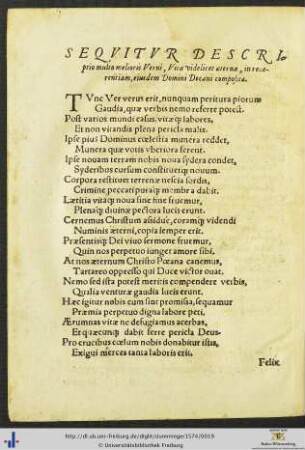 SEQVITVR DESCRI-
ptio multo melioris Verni, Vitæ videlicet æternæ, in reue-
rentiam, eiusdem Domini Decani composita.
TVnc Ver verum erit, nunquam peritura piorum
Gaudia, quæ verbis nemo referre potest.
Post varios mundi casus, vitæq́; labores,
Et non vitandis plena pericla malis.
Ipse pius Dominus cœlestia munera reddet,
Munera quæ votis vberiora ferent.
Ipse nouam terram nobis noua sydera condet,
Syderibus cursum constituetq́; nouum.
Corpora restituet terrenæ nescia sordis,
Crimine peccati puraq́; membra dabit.
Lætitia vitaq́; noua sine fine fruemur,
Plenaq́; diuinæ pectora lucis erunt.
Cernemus Christum assidue, coramq́; videndi
Numinis æterni, copia semper erit.
Præsentisq́; Dei viuo sermone fruemur,
Quin nos perpetuo iunget amore sibi.
At nos æternum Christo Pæana canemus,
Tartareo oppresso qui Duce victor ouat.
Nemo sed ista potest meritis compendere verbis,
Qualia venturæ gaudia lucis erunt.
Hæc igitur nobis cum sint promissa, sequamur
Præmia perpetuo digna labore peti.
Ærumnas vitæ ne defugiamus acerbas,
Et quæcunq́; dabit ferre pericla Deus.
Pro crucibus cœlum nobis donabitur istis,
Exigui merces tanta laboris erit.
Felix
http://dl.ub.uni-freiburg.de/diglit/dumminger1574/0019
© Universitätsbibliothek Freiburg
Baden-Württemberg